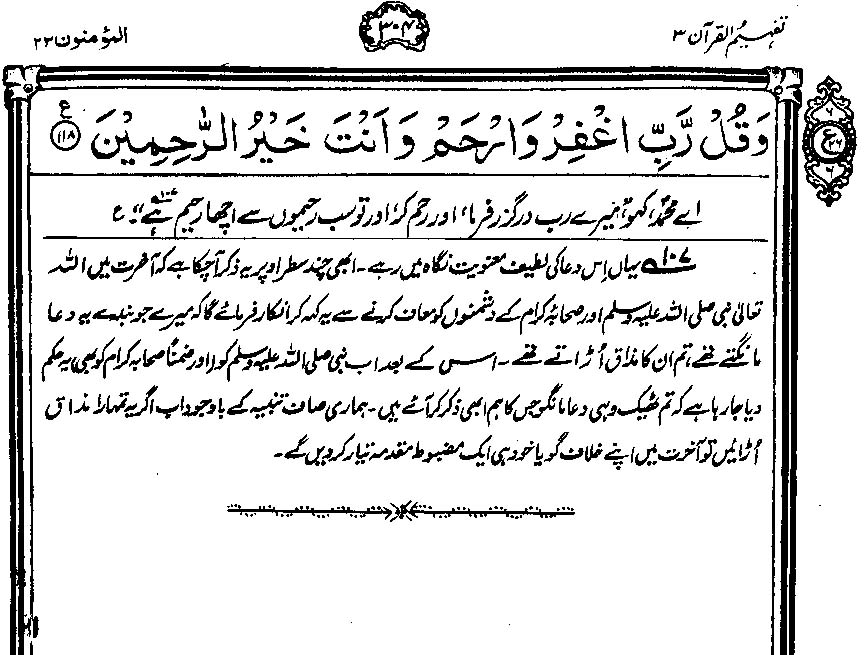 تفہیم القرآن ۳
۳۰۴
المؤمنون ۲۳
وَقُلْ رَّبِّ اغْفِرْ وَارْحَمْ وَاَنْتَ خَيْرُ الرّٰحِمِيْنَ ۝۱۱۸ ع
ع ۶ ۲۶ ۶
اے محمدؐ، کہو، "میرے رب درگزر فرما، اور رحم کر، اور تو سب رحیموں سے اچھا رحیم ہے۱۰۷"۔ ع
۱۰۷ یہاں اِس دعا کی لطیف معنویت نگاہ میں رہے۔ ابھی چند سطر اوپر یہ ذکر آچکا ہے کہ آخرت میں اللہ
تعالیٰ نبی صلی اللہ علیہ وسلم اور صحابۂ کرام کے دشمنوں کو معاف کرنے سے یہ کہہ کر انکار فرمائے گا کہ میرے جو بندے یہ دعا
مانگتے تھے، تم ان کا مذاق اُڑاتے تھے۔ اس کے بعد اب نبی صلی اللہ علیہ وسلم کو (اور ضمناً صحابہ کرام کو بھی) یہ حکم
دیا جا رہا ہے کہ تم ٹھیک وہی دعا مانگو جس کا ہم ابھی ذکر کر آئے ہیں۔ ہماری صاف تنبیہ کے باوجود اب اگر یہ تمہارا مذاق
اُڑائیں تو آخرت میں اپنے خلاف گویا خود ہی ایک مضبوط مقدمہ تیار کر دیں گے۔